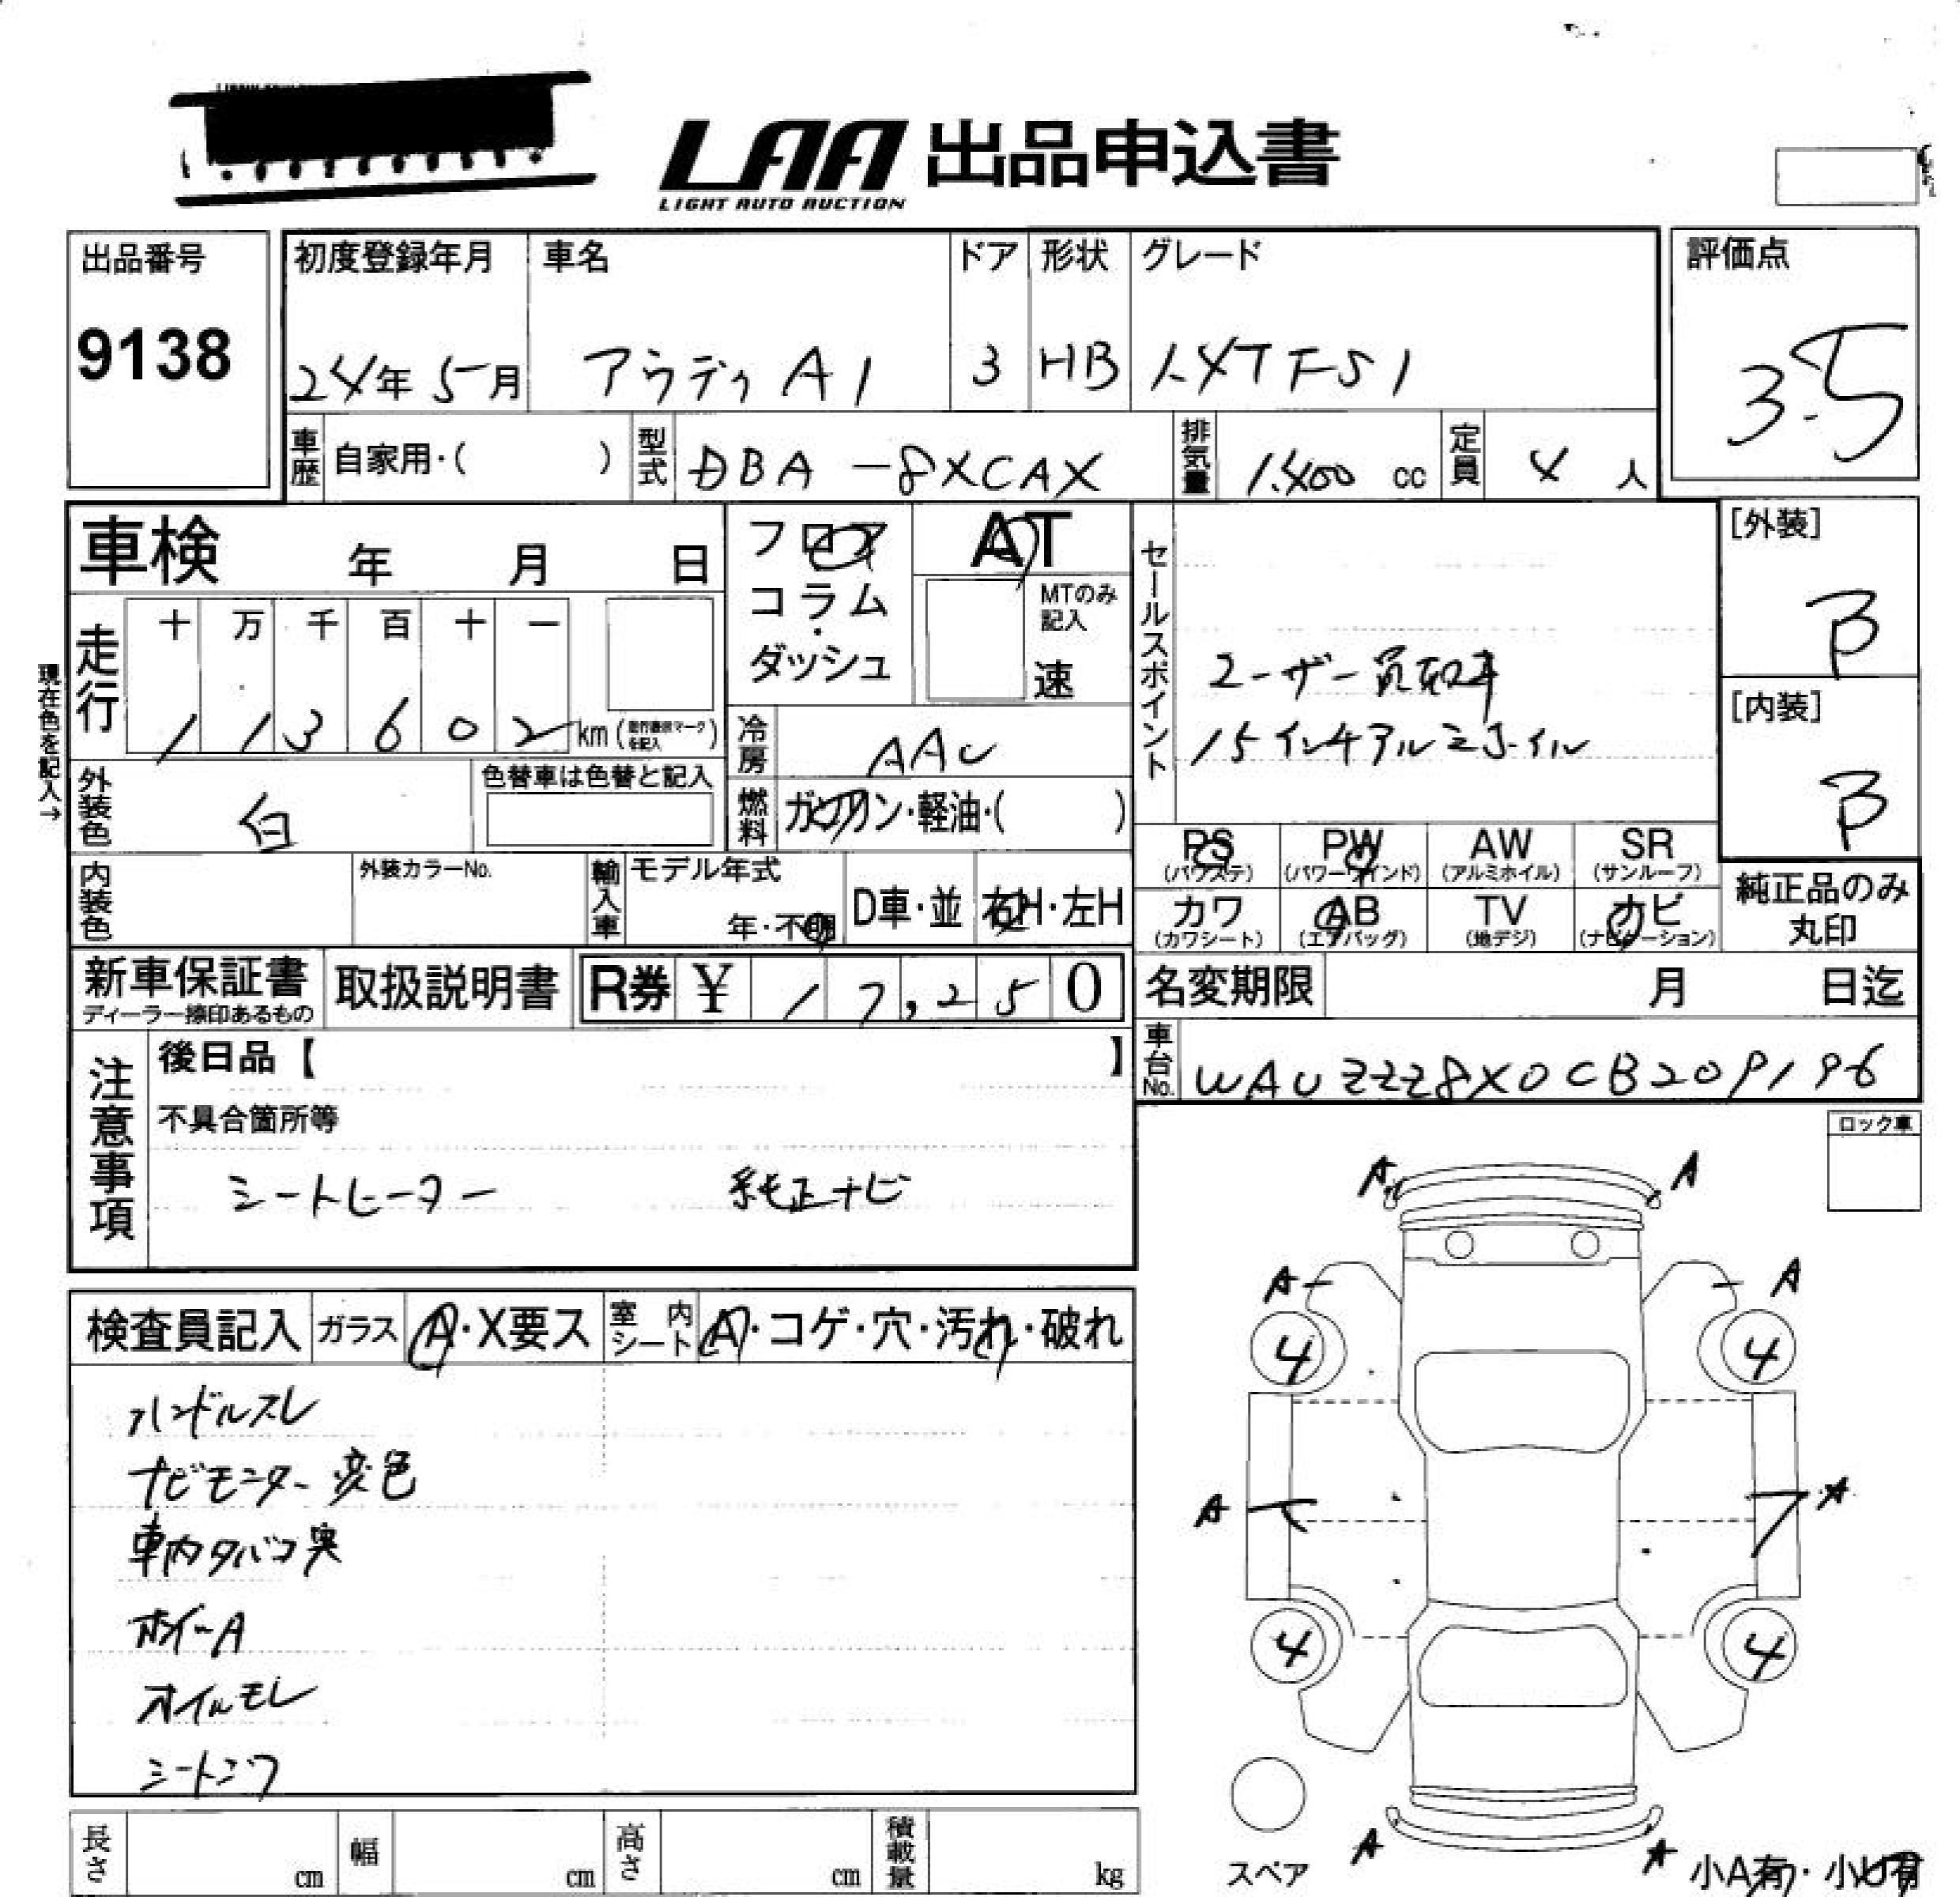 LAA 出品申込書
LIGHT AUTO AUCTION
出品番号
9138
初度登録年月
24年 5月
車名
アウディ A1
ドア
3
形状
HB
グレード
1.4TFSI
評価点
3.5
車歴 自家用・( )
型式 DBA-8XCAX
排気量 1.400 cc
定員 4 人
車検 年 月 日
走行
十 万 千 百 十 一
1 1 3 6 0 2 km
現在色を記入→
フロア
コラム・
ダッシュ
AT
MTのみ
記入
速
冷房 AAC
燃料 ガソリン・軽油・( )
セールスポイント
ユーザー買取車
15インチアルミホイル
[外装]
B
[内装]
B
外装色 白
色替車は色替と記入
内装色
外装カラーNo.
輸入車
モデル年式
年・不明
D車・並 右H・左H
PS
(パワステ)
PW
(パワーウインド)
AW
(アルミホイル)
SR
(サンルーフ)
カワ
(カワシート)
AB
(エアバッグ)
TV
(地デジ)
ナビ
(ナビゲーション)
純正品のみ
丸印
新車保証書
ディーラー捺印あるもの
取扱説明書
R券 ¥ 17,250
名変期限 月 日迄
車台No. WAUZZZ8X0CB209196
注意事項
後日品【 】
不具合箇所等
シートヒーター 純正ナビ
ロック車
検査員記入
ガラス A・X要ス
室内シート A・コゲ・穴・汚れ・破れ
ハンドルスレ
ナビモニター変色
車内タバコ臭
ホイールA
オイルモレ
シートシワ
A A
A A
4 4
A A
4 4
A A
スペア
小A有・小U有
長さ cm
幅 cm
高さ cm
積載量 kg